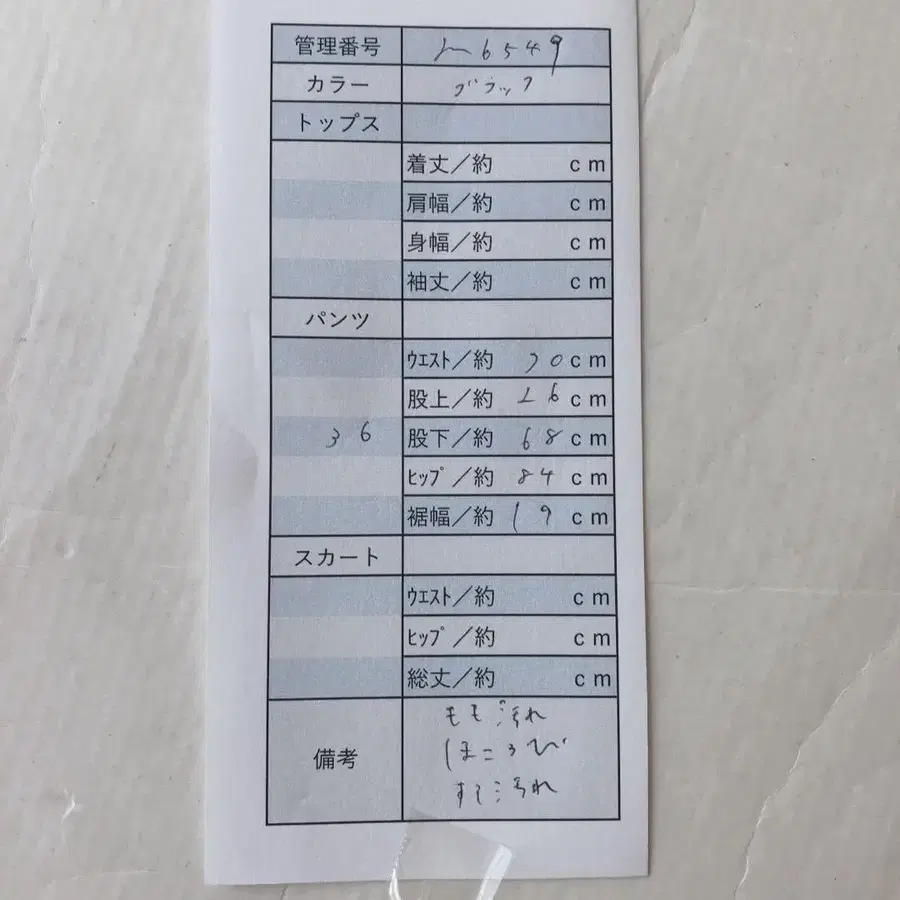 管理番号 m6549
カラー ブラック
トップス
着丈／約 cm
肩幅／約 cm
身幅／約 cm
袖丈／約 cm
パンツ
36
ｳｴｽﾄ／約 70cm
股上／約 26cm
股下／約 68cm
ﾋｯﾌﾟ／約 84cm
裾幅／約 19cm
スカート
ｳｴｽﾄ／約 cm
ﾋｯﾌﾟ／約 cm
総丈／約 cm
備考
もも汚れ
ほころび
すそ汚れ